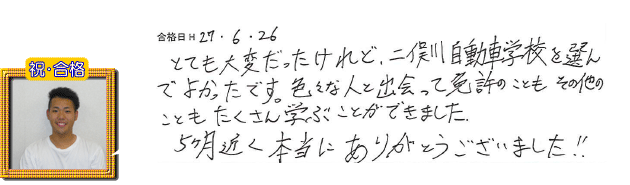 合格日 H 27・6・26
祝・合格
とても大変だったけれど、二俣川自動車学校を選ん
でよかったです。色々な人と出会って免許のことも その他の
こともたくさん学ぶことができました.
5ヶ月近く 本当に ありがとうございました!!